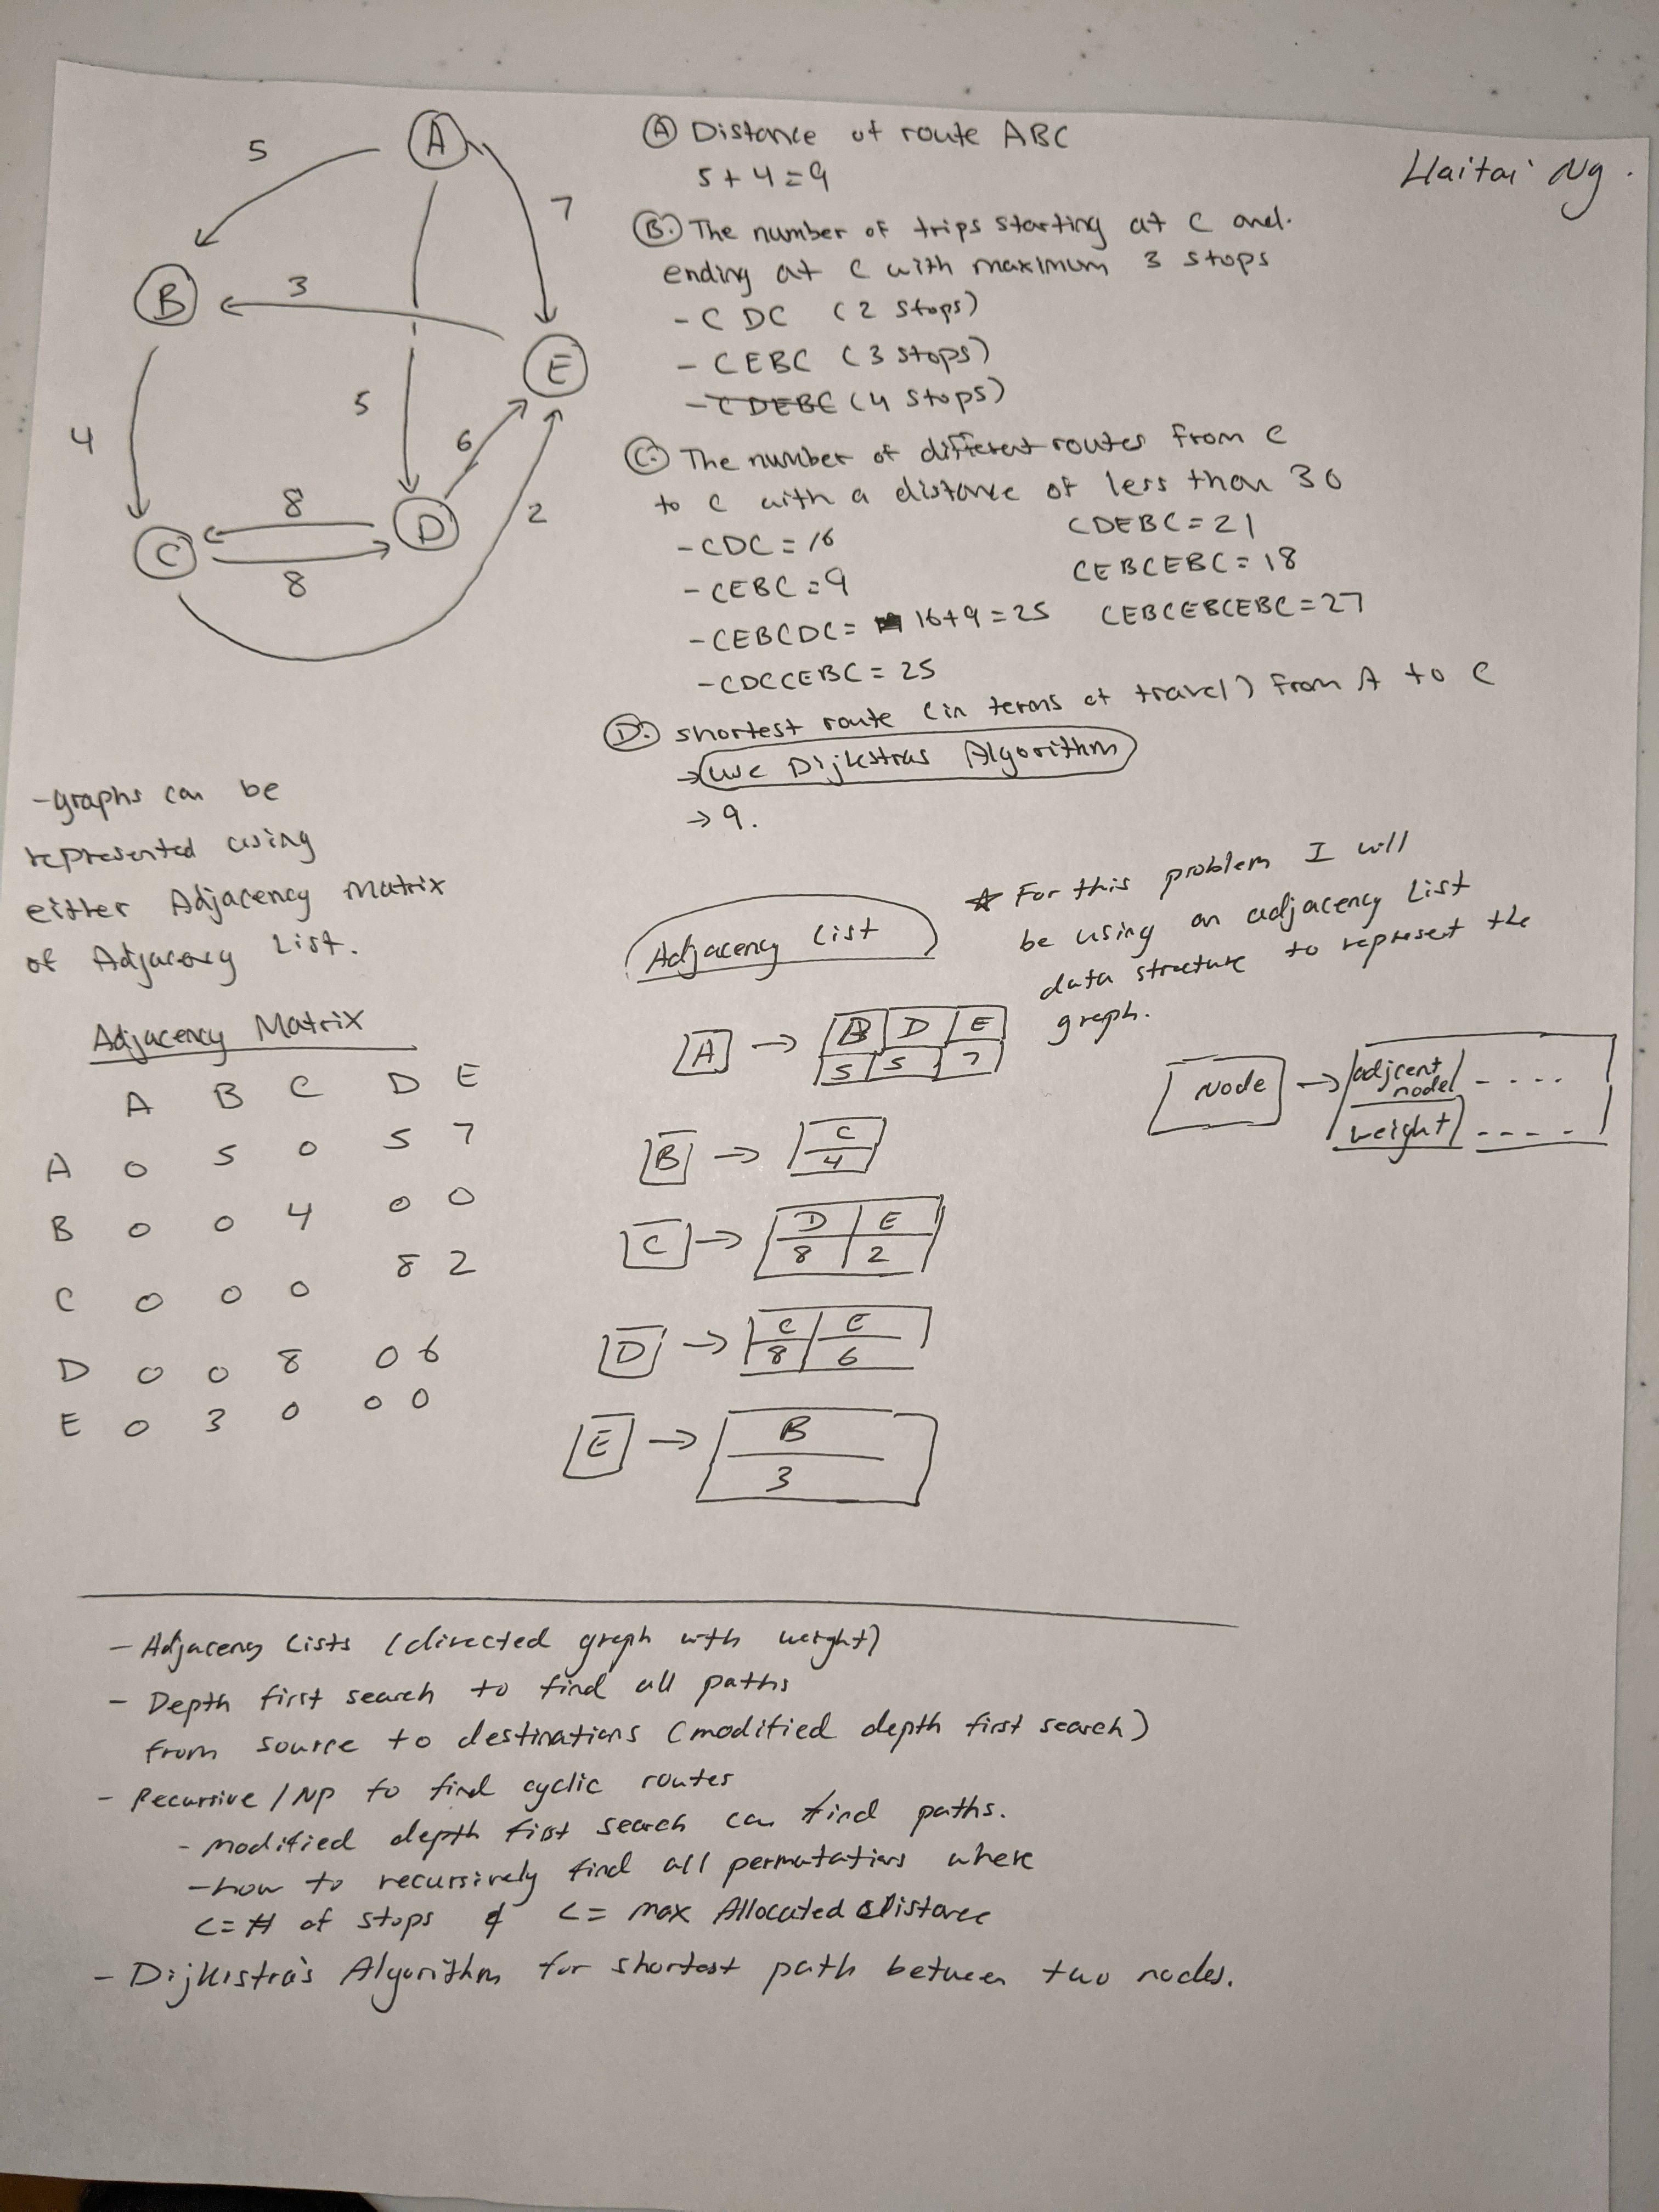 A
5
7
B
3
E
5
4
6
8
D
2
C
8
Haitai Ng.
Ⓐ Distance of route ABC
5+4=9
Ⓑ. The number of trips starting at C and.
ending at C with maximum 3 stops
- C DC (2 stops)
- CEBC (3 stops)
- CDEBC (4 stops)
Ⓒ. The number of different routes from C
to C with a distance of less than 30
- CDC = 16
- CEBC = 9
- CEBCDC = 16+9=25
- CDCCEBC = 25
CDEBC = 21
CEBCEBC = 18
CEBCEBCEBC = 27
Ⓓ. shortest route (in terms of travel) from A to C
→ use Dijkstras Algorithm
→ 9.
- graphs can be
represented using
either Adjacency Matrix
of Adjacency List.
Adjacency Matrix
A B C D E
A 0 5 0 5 7
B 0 0 4 0 0
C 0 0 0 8 2
D 0 0 8 0 6
E 0 3 0 0 0
Adjacency List
* For this problem I will
be using an adjacency List
data structure to represent the
graph.
A → B D E
5 5 7
B → C
4
C → D E
8 2
D → C E
8 6
E → B
3
Node → adjcent
node - - - -
weight - - - -
- Adjaceny Lists (directed graph with weight)
- Depth first search to find all paths
from source to destinations (modified depth first search)
- Recursive / NP to find cyclic routes
- modified depth first search can find paths.
- how to recursively find all permutations where
<= # of stops & <= max Allocated distance
- Dijkistra's Algorithm for shortest path between two nodes.